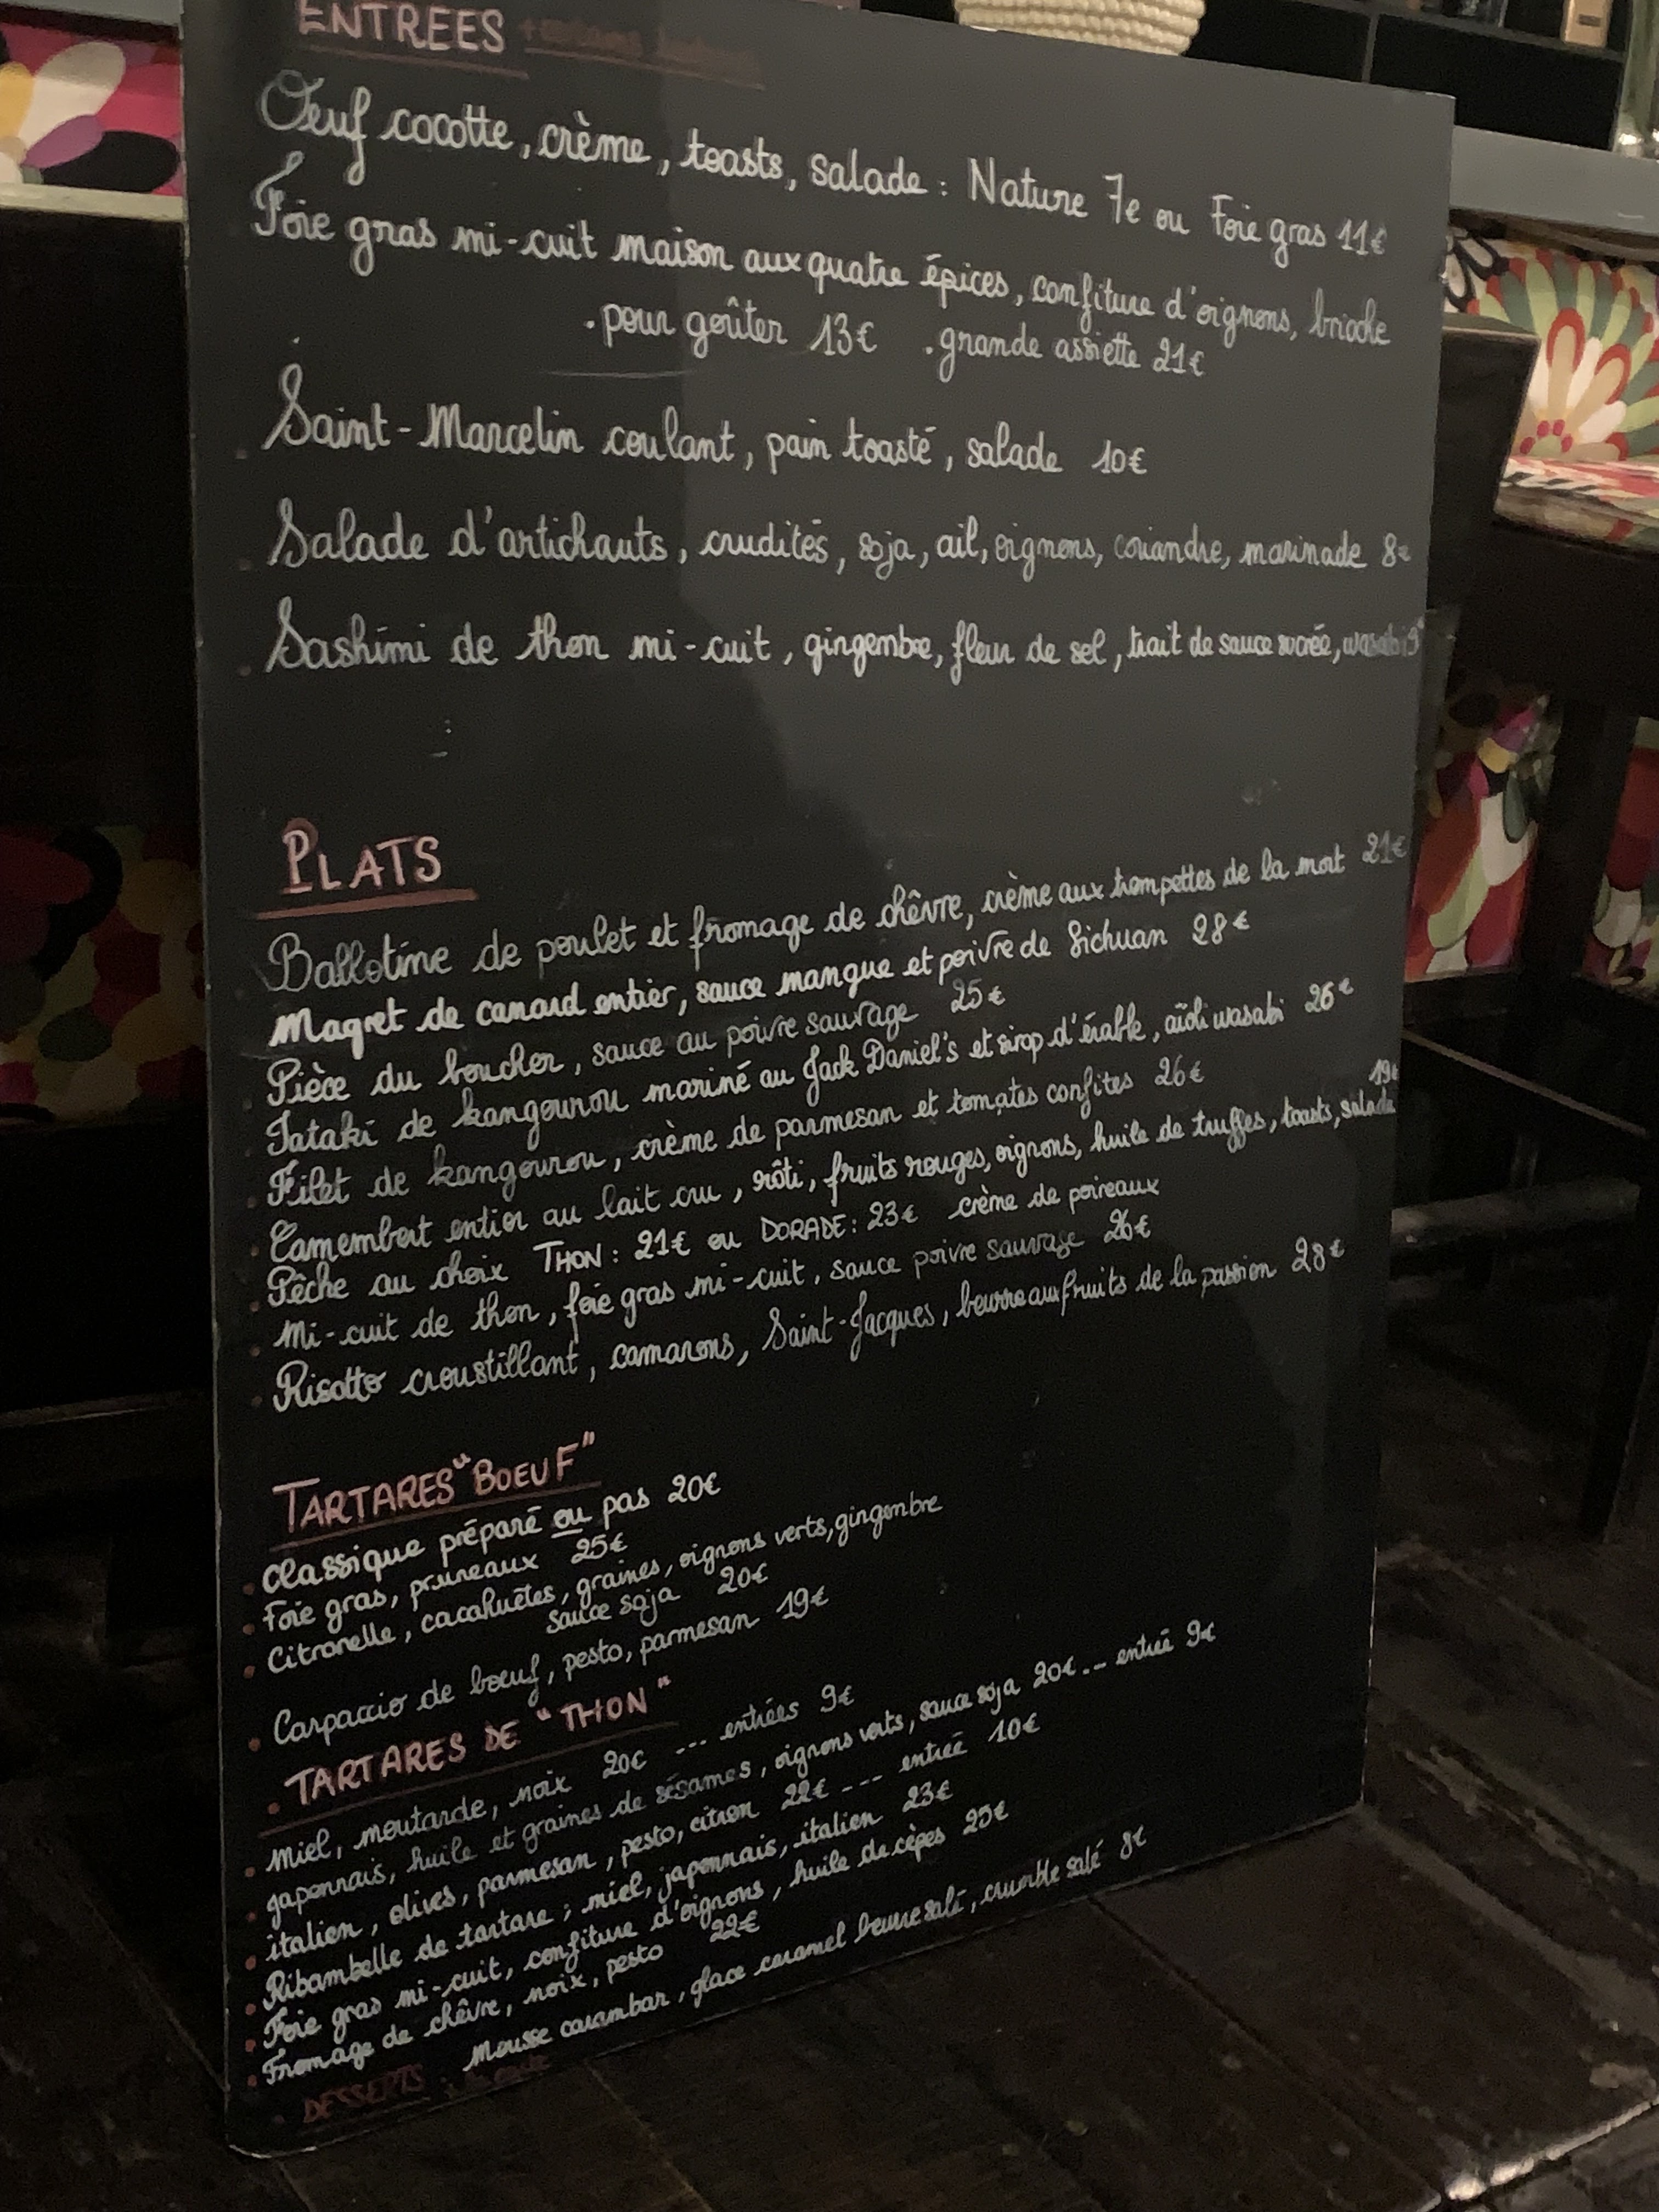 ENTREES
Œuf cocotte, crème, toasts, salade : Nature 7€ ou Foie gras 11€
Foie gras mi-cuit maison aux quatre épices, confiture d'oignons, brioche
. pour goûter 13€ . grande assiette 21€
Saint-Marcelin coulant, pain toasté, salade 10€
Salade d'artichauts, crudités, soja, ail, oignons, coriandre, marinade 8€
Sashimi de thon mi-cuit, gingembre, fleur de sel, trait de sauce sucrée, wasabi 9€
PLATS
Ballotine de poulet et fromage de chêvre, crème aux trompettes de la mort 21€
Magret de canard entier, sauce mangue et poivre de Sichuan 28€
Pièce du boucher, sauce au poivre sauvage 25€
Tataki de kangourou mariné au Jack Daniel's et sirop d'érable, aïoli wasabi 26€
Filet de kangourou, crème de parmesan et tomates confites 26€
19€
Camembert entier au lait cru, rôti, fruits rouges, oignons, huile de truffes, toasts, salade
Pêche au choix THON : 21€ ou DORADE : 23€ crème de poireaux
Mi-cuit de thon, foie gras mi-cuit, sauce poivre sauvage 26€
Risotto croustillant, camarons, Saint-Jacques, beurre aux fruits de la passion 28€
TARTARES "BOEUF"
. classique préparé ou pas 20€
. Foie gras, pruneaux 25€
. Citronelle, cacahuètes, graines, oignons verts, gingembre
sauce soja 20€
. Carpaccio de boeuf, pesto, parmesan 19€
. TARTARES DE "THON"
. miel, moutarde, noix 20€ --- entrées 9€
. japonnais, huile et graines de sésames, oignons verts, sauce soja 20€ .-- entrée 9€
. italien, olives, parmesan, pesto, citron 22€ --- entrée 10€
. Ribambelle de tartare ; miel, japonnais, italien 23€
. Foie gras mi-cuit, confiture d'oignons, huile de cèpes 25€
. Fromage de chêvre, noix, pesto 22€
. DESSERTS : Mousse carambar, glace caramel beurre salé, crumble salé 8€